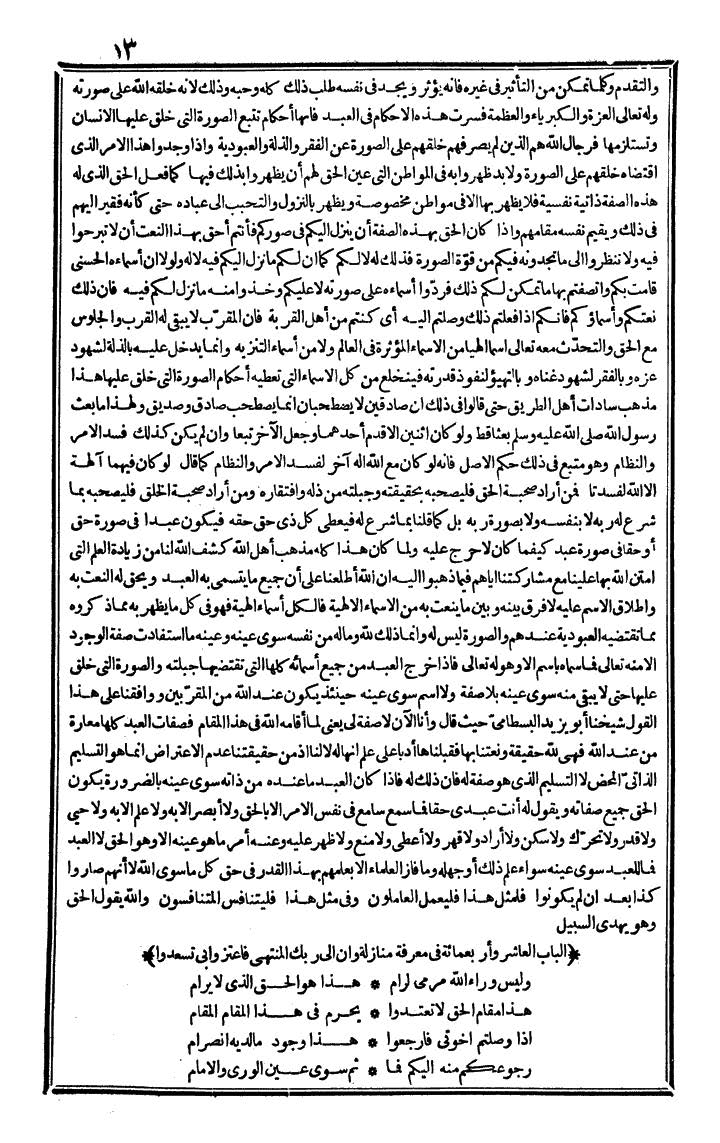 ١٣
والتقدم وكلما تمكن من التأثير فى غيره فانه يؤثر ويجد فى نفسه طلب ذلك كله وحبه وذلك لانه خلقه الله على صورته
وله تعالى العزة والكبرياء والعظمة فسرت هذه الاحكام فى العبد فانها أحكام تتبع الصورة التى خلق عليها الانسان
وتستلزمها فرجال الله هم الذين لم يصرفهم خلقهم على الصورة عن الفقر والذلة والعبودية واذا وجدوا هذا الامر الذى
اقتضاه خلقهم على الصورة ولابد ظهروا به فى المواطن التى عين الحق لهم أن يظهروا بذلك فيها كما فعل الحق الذى له
هذه الصفة ذاتية نفسية فلا يظهر بها الا فى مواطن مخصوصة ويظهر بالنزول والتحبب الى عباده حتى كأنه فقير اليهم
فى ذلك ويقيم نفسه مقامهم واذا كان الحق بهذه الصفة أن ينزل اليكم فى صوركم فأنتم أحق بهذا النعت أن لا تبرحوا
فيه ولا تنظروا الى ما تجدونه فيكم من قوّة الصورة فذلك له لا لكم كما ان لكم ما نزل اليكم فيه لا له ولولا ان أسماءه الحسنى
قامت بكم واتصفتم بها ما تمكن لكم ذلك فردّوا أسماءه على صورته لا عليكم وخذوا منه ما نزل لكم فيه فان ذلك
نعتكم وأسماؤكم فانكم اذا فعلتم ذلك وصلتم اليه أى كنتم من أهل القربة فان المقرّب لا يبقى له القرب والجلوس
مع الحق والتحدّث معه تعالى اسما الهيا من الاسماء المؤثرة فى العالم ولا من أسماء التنزيه وانما يدخل عليه بالذلة لشهود
عزه وبالفقر لشهود غناه وبالتهيؤ لنفوذ قدرته فينخلع من كل الاسماء التى تعطيه أحكام الصورة التى خلق عليها هذا
مذهب سادات أهل الطريق حتى قالوا فى ذلك ان صادقين لا يصطحبان انما يصطحب صادق وصديق ولهذا ما بعث
رسول الله صلى الله عليه وسلم بعثا قط ولو كان اثنين الا قدم أحدهما وجعل الآخر تبعا وان لم يكن كذلك فسد الامر
والنظام وهو متبع فى ذلك حكم الاصل فانه لو كان مع الله اله آخر لفسد الامر والنظام كما قال لو كان فيهما آلهة
الا الله لفسدتا فمن أراد صحبة الحق فليصحبه بحقيقته وجبلته من ذله وافتقاره ومن أراد صحبة الخلق فليصحبه بما
شرع له ربه لا بنفسه ولا بصورة ربه بل كما قلنا بما شرع له فيعطى كل ذى حق حقه فيكون عبدا فى صورة حق
أو حقا فى صورة عبد كيفما كان لا حرج عليه ولما كان هذا كله مذهب أهل الله كشف الله لنا من زيادة العلم التى
امتن الله بها علينا مع مشاركتنا اياهم فيما ذهبوا اليه ان الله أطلعنا على أن جميع ما يتسمى به العبد ويحق له النعت به
واطلاق الاسم عليه لا فرق بينه وبين ما ينعت به من الاسماء الالهية فالكل أسماء الهية فهو فى كل ما يظهر به مما ذكروه
مما تقتضيه العبودية عندهم والصورة ليس له وانما ذلك لله وما له من نفسه سوى عينه وعينه ما استفادت صفة الوجود
الا منه تعالى فما سماه باسم الا وهو له تعالى فاذا خرج العبد من جميع أسمائه كلها التى تقتضيها جبلته والصورة التى خلق
عليها حتى لا يبقى منه سوى عينه بلا صفة ولا اسم سوى عينه حينئذ يكون عند الله من المقرّبين ووافقنا على هذا
القول شيخنا أبو يزيد البسطامىّ حيث قال وأنا الآن لا صفة لى يعنى لما أقامه الله فى هذا المقام فصفات العبد كلها معارة
من عند الله فهى لله حقيقة ونعتنا بها فقبلناها أدبا على علم انها له لا لنا اذ من حقيقتنا عدم الاعتراض انما هو التسليم
الذاتىّ المحض لا التسليم الذى هو صفة له فان ذلك له فاذا كان العبد ما عنده من ذاته سوى عينه بالضرورة يكون
الحق جميع صفاته ويقول له أنت عبدى حقا فما سمع سامع فى نفس الامر الا بالحق ولا أبصر الا به ولا علم الا به ولا حيي
ولا قدر ولا تحرّك ولا سكن ولا أراد ولا قهر ولا أعطى ولا منع ولا ظهر عليه وعنه أمر ما هو عينه الا وهو الحق لا العبد
فما للعبد سوى عينه سواء علم ذلك أو جهله وما فاز العلماء الا بعلمهم بهذا القدر فى حق كل ما سوى الله لا أنهم صاروا
كذا بعد ان لم يكونوا فلمثل هذا فليعمل العاملون وفى مثل هذا فليتنافس المتنافسون والله يقول الحق
وهو يهدى السبيل
﴿الباب العاشر وأربعمائة فى معرفة منازلة وان الى ربك المنتهى فاعتزوا بى تسعدوا﴾
وليس وراء الله مرمى لرام * هذا هو الحق الذى لا يرام
هذا مقام الحق لا تعتدوا * يحرم فى هذا المقام المقام
اذا وصلتم اخوتى فارجعوا * هذا وجود ما لديه انصرام
رجوعكم منه اليكم فما * ثم سوى عين الورى والامام